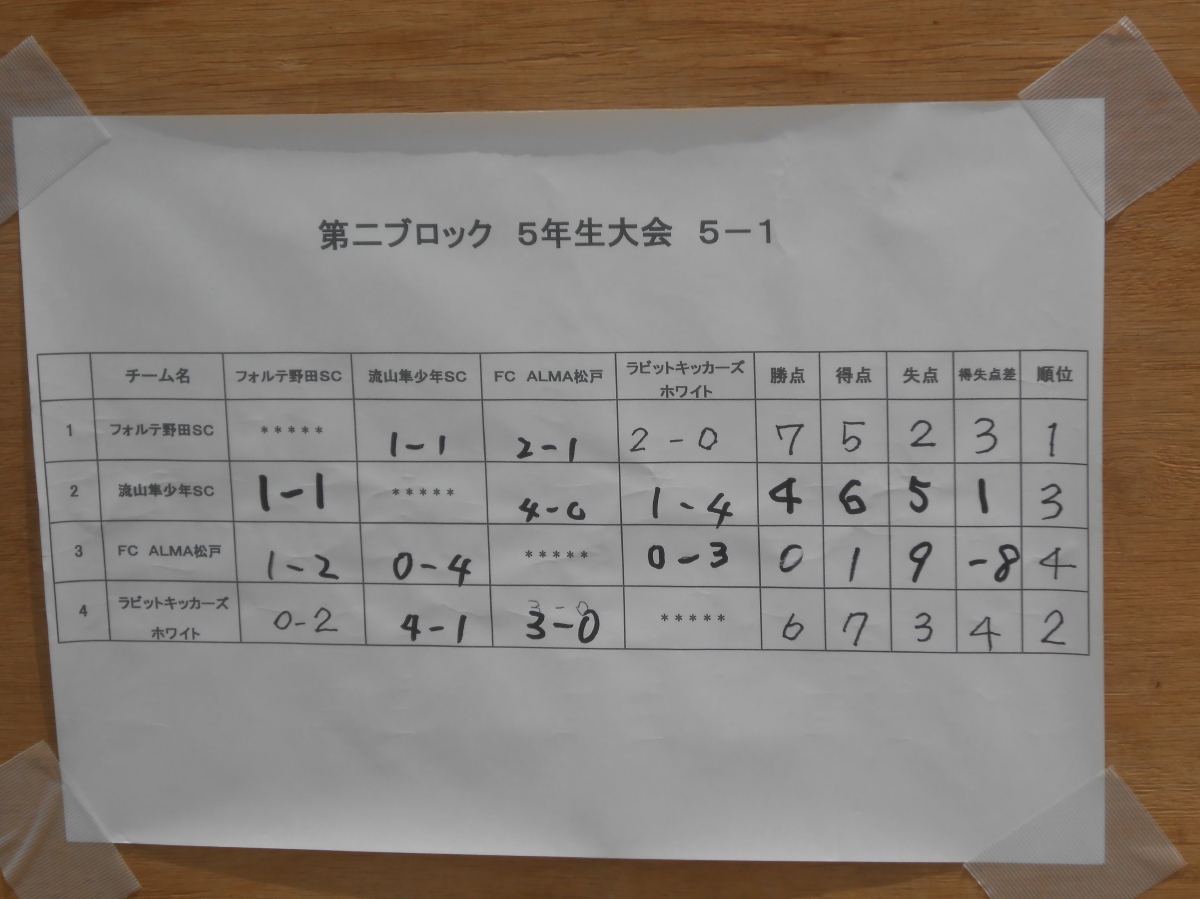 第二ブロック 5年生大会 5－1
チーム名 フォルテ野田SC 流山隼少年SC FC ALMA松戸 ラビットキッカーズ ホワイト 勝点 得点 失点 得失点差 順位
1 フォルテ野田SC ***** 1-1 2-1 2-0 7 5 2 3 1
2 流山隼少年SC 1-1 ***** 4-0 1-4 4 6 5 1 3
3 FC ALMA松戸 1-2 0-4 ***** 0-3 0 1 9 -8 4
4 ラビットキッカーズ ホワイト 0-2 4-1 3-0 3-0 ***** 6 7 3 4 2